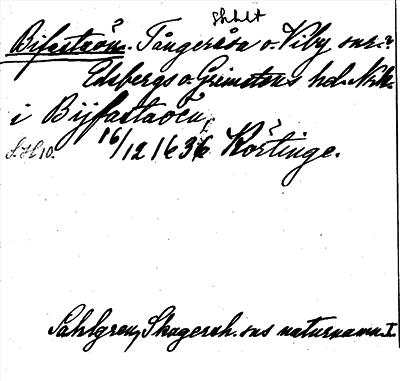 Skhlt
Bifastaön. Tångeråsa o. Viby snr.?
Edsbergs o. Grimstens hd. Nrk.
i Bijfastaöen,
S.H 10. 16/12 1636 Körtinge.
Sahlgren, Skagersh. sns naturnamn. I.